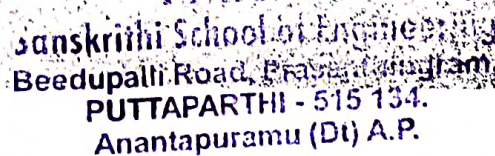 Sanskrithi School of Engineering
Beedupalli Road, Prasanthigram,
PUTTAPARTHI - 515 134.
Anantapuramu (Dt) A.P.